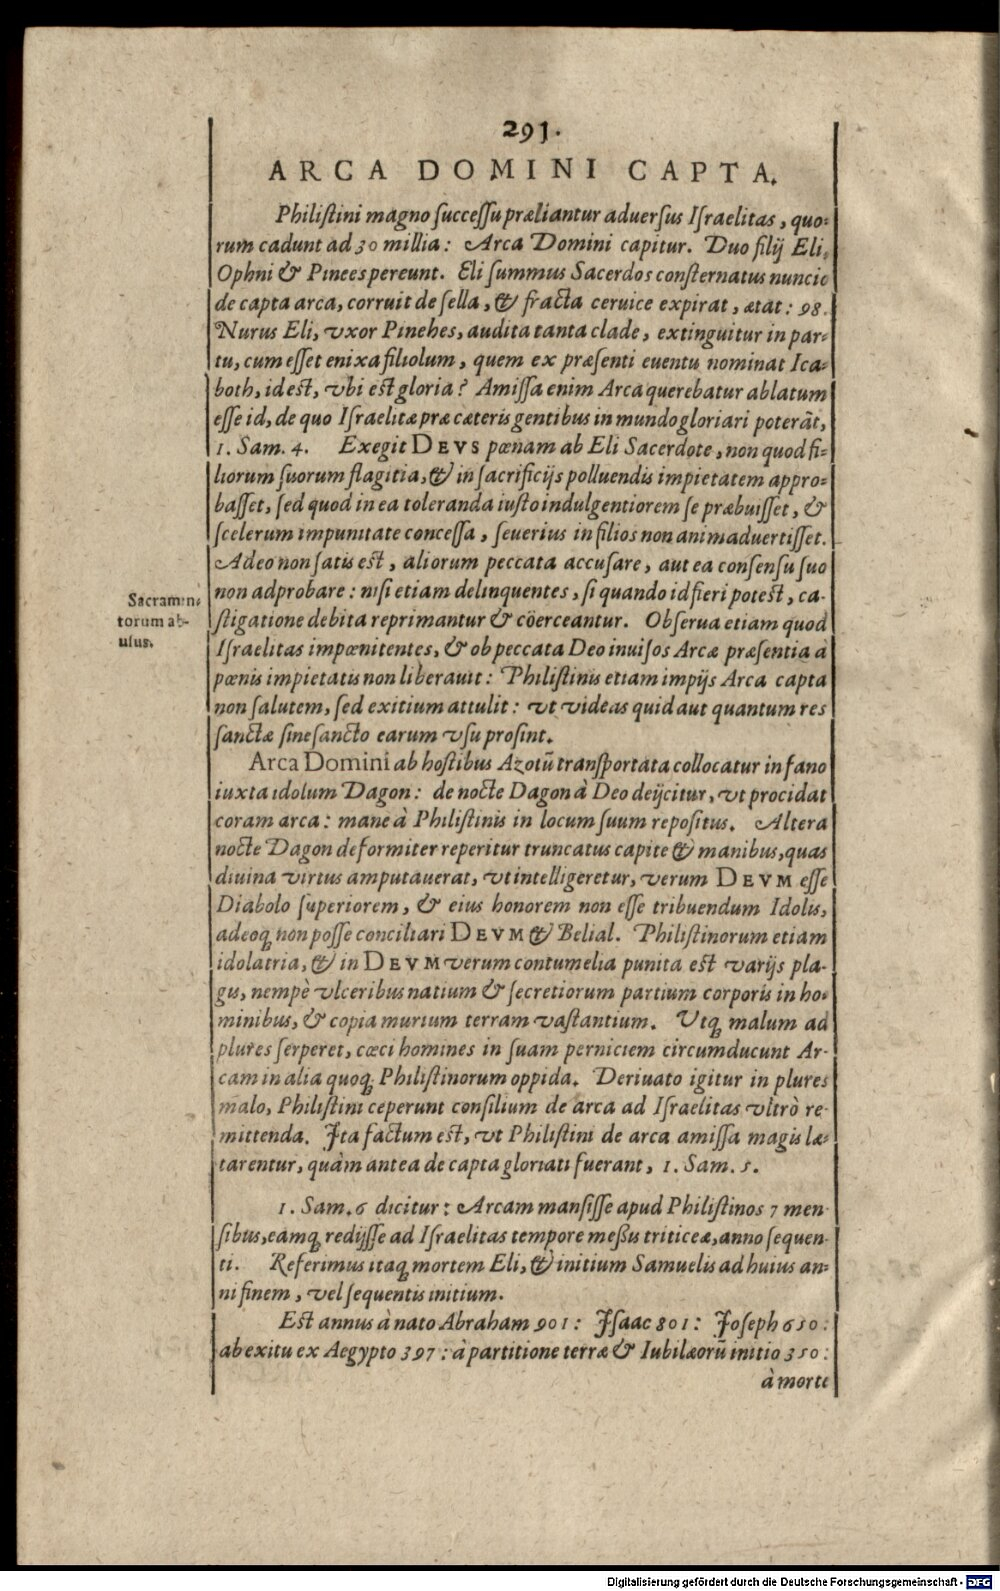 291.
ARCA DOMINI CAPTA.
Philiſtini magno ſucceſſu præliantur aduerſus Iſraelitas, quo-
rum cadunt ad 30 millia: Arca Domini capitur. Duo filij Eli,
Ophni & Pinees pereunt. Eli ſummus Sacerdos conſternatus nuncio
de capta arca, corruit de ſella, & fracta ceruice expirat, ætat: 98.
Nurus Eli, vxor Pinehes, audita tanta clade, extinguitur in par-
tu, cum eſſet enixa filiolum, quem ex præſenti euentu nominat Ica-
both, id est, vbi est gloria? Amiſſa enim Arca querebatur ablatum
eſſe id, de quo Iſraelitæ præ cæteris gentibus in mundo gloriari poterāt,
1. Sam. 4. Exegit DEVS pœnam ab Eli Sacerdote, non quod fi-
liorum ſuorum flagitia, & in ſacrificijs polluendis impietatem appro-
baſſet, ſed quod in ea toleranda iusto indulgentiorem ſe præbuiſſet, &
ſcelerum impunitate conceſſa, ſeuerius in filios non animaduertiſſet.
Adeo non ſatis est, aliorum peccata accuſare, aut ea conſenſu ſuo
non adprobare: niſi etiam delinquentes, ſi quando id fieri potest, ca-
ſtigatione debita reprimantur & cöerceantur. Obſerua etiam quod
Iſraelitas impœnitentes, & ob peccata Deo inuiſos Arcæ præſentia à
pœnis impietatis non liberauit: Philiſtinis etiam impijs Arca capta
non ſalutem, ſed exitium attulit: vt videas quid aut quantum res
ſanctæ ſine ſancto earum vſu proſint.
Sacramen-
torum ab-
uſus.
Arca Domini ab hoſtibus Azotū tranſportata collocatur in fano
iuxta idolum Dagon: de nocte Dagon à Deo deijcitur, vt procidat
coram arca: mane à Philiſtinis in locum ſuum repoſitus. Altera
nocte Dagon deformiter reperitur truncatus capite & manibus, quas
diuina virtus amputauerat, vt intelligeretur, verum DEVM eſſe
Diabolo ſuperiorem, & eius honorem non eſſe tribuendum Idolis,
adeoq; non poſſe conciliari DEVM & Belial. Philiſtinorum etiam
idolatria, & in DEVM verum contumelia punita est varijs pla-
gis, nempè vlceribus natium & ſecretiorum partium corporis in ho-
minibus, & copia murium terram vaſtantium. Vtq; malum ad
plures ſerperet, cœci homines in ſuam perniciem circumducunt Ar-
cam in alia quoq; Philiſtinorum oppida. Deriuato igitur in plures
malo, Philiſtini ceperunt conſilium de arca ad Iſraelitas vltrò re-
mittenda. Ita factum est, vt Philiſtini de arca amiſſa magis læ-
tarentur, quàm antea de capta gloriati fuerant, 1. Sam. 5.
1. Sam. 6 dicitur: Arcam manſiſſe apud Philiſtinos 7 men-
ſibus, eamq; redijſſe ad Iſraelitas tempore meßis triticeæ, anno ſequen-
ti. Referimus itaq; mortem Eli, & initium Samuelis ad huius an-
ni finem, vel ſequentis initium.
Est annus à nato Abraham 901: Iſaac 801: Ioſeph 650:
ab exitu ex Aegypto 397: à partitione terræ & Iubilæorū initio 350:
à morte
Digitalisierung gefördert durch die Deutsche Forschungsgemeinschaft - DFG